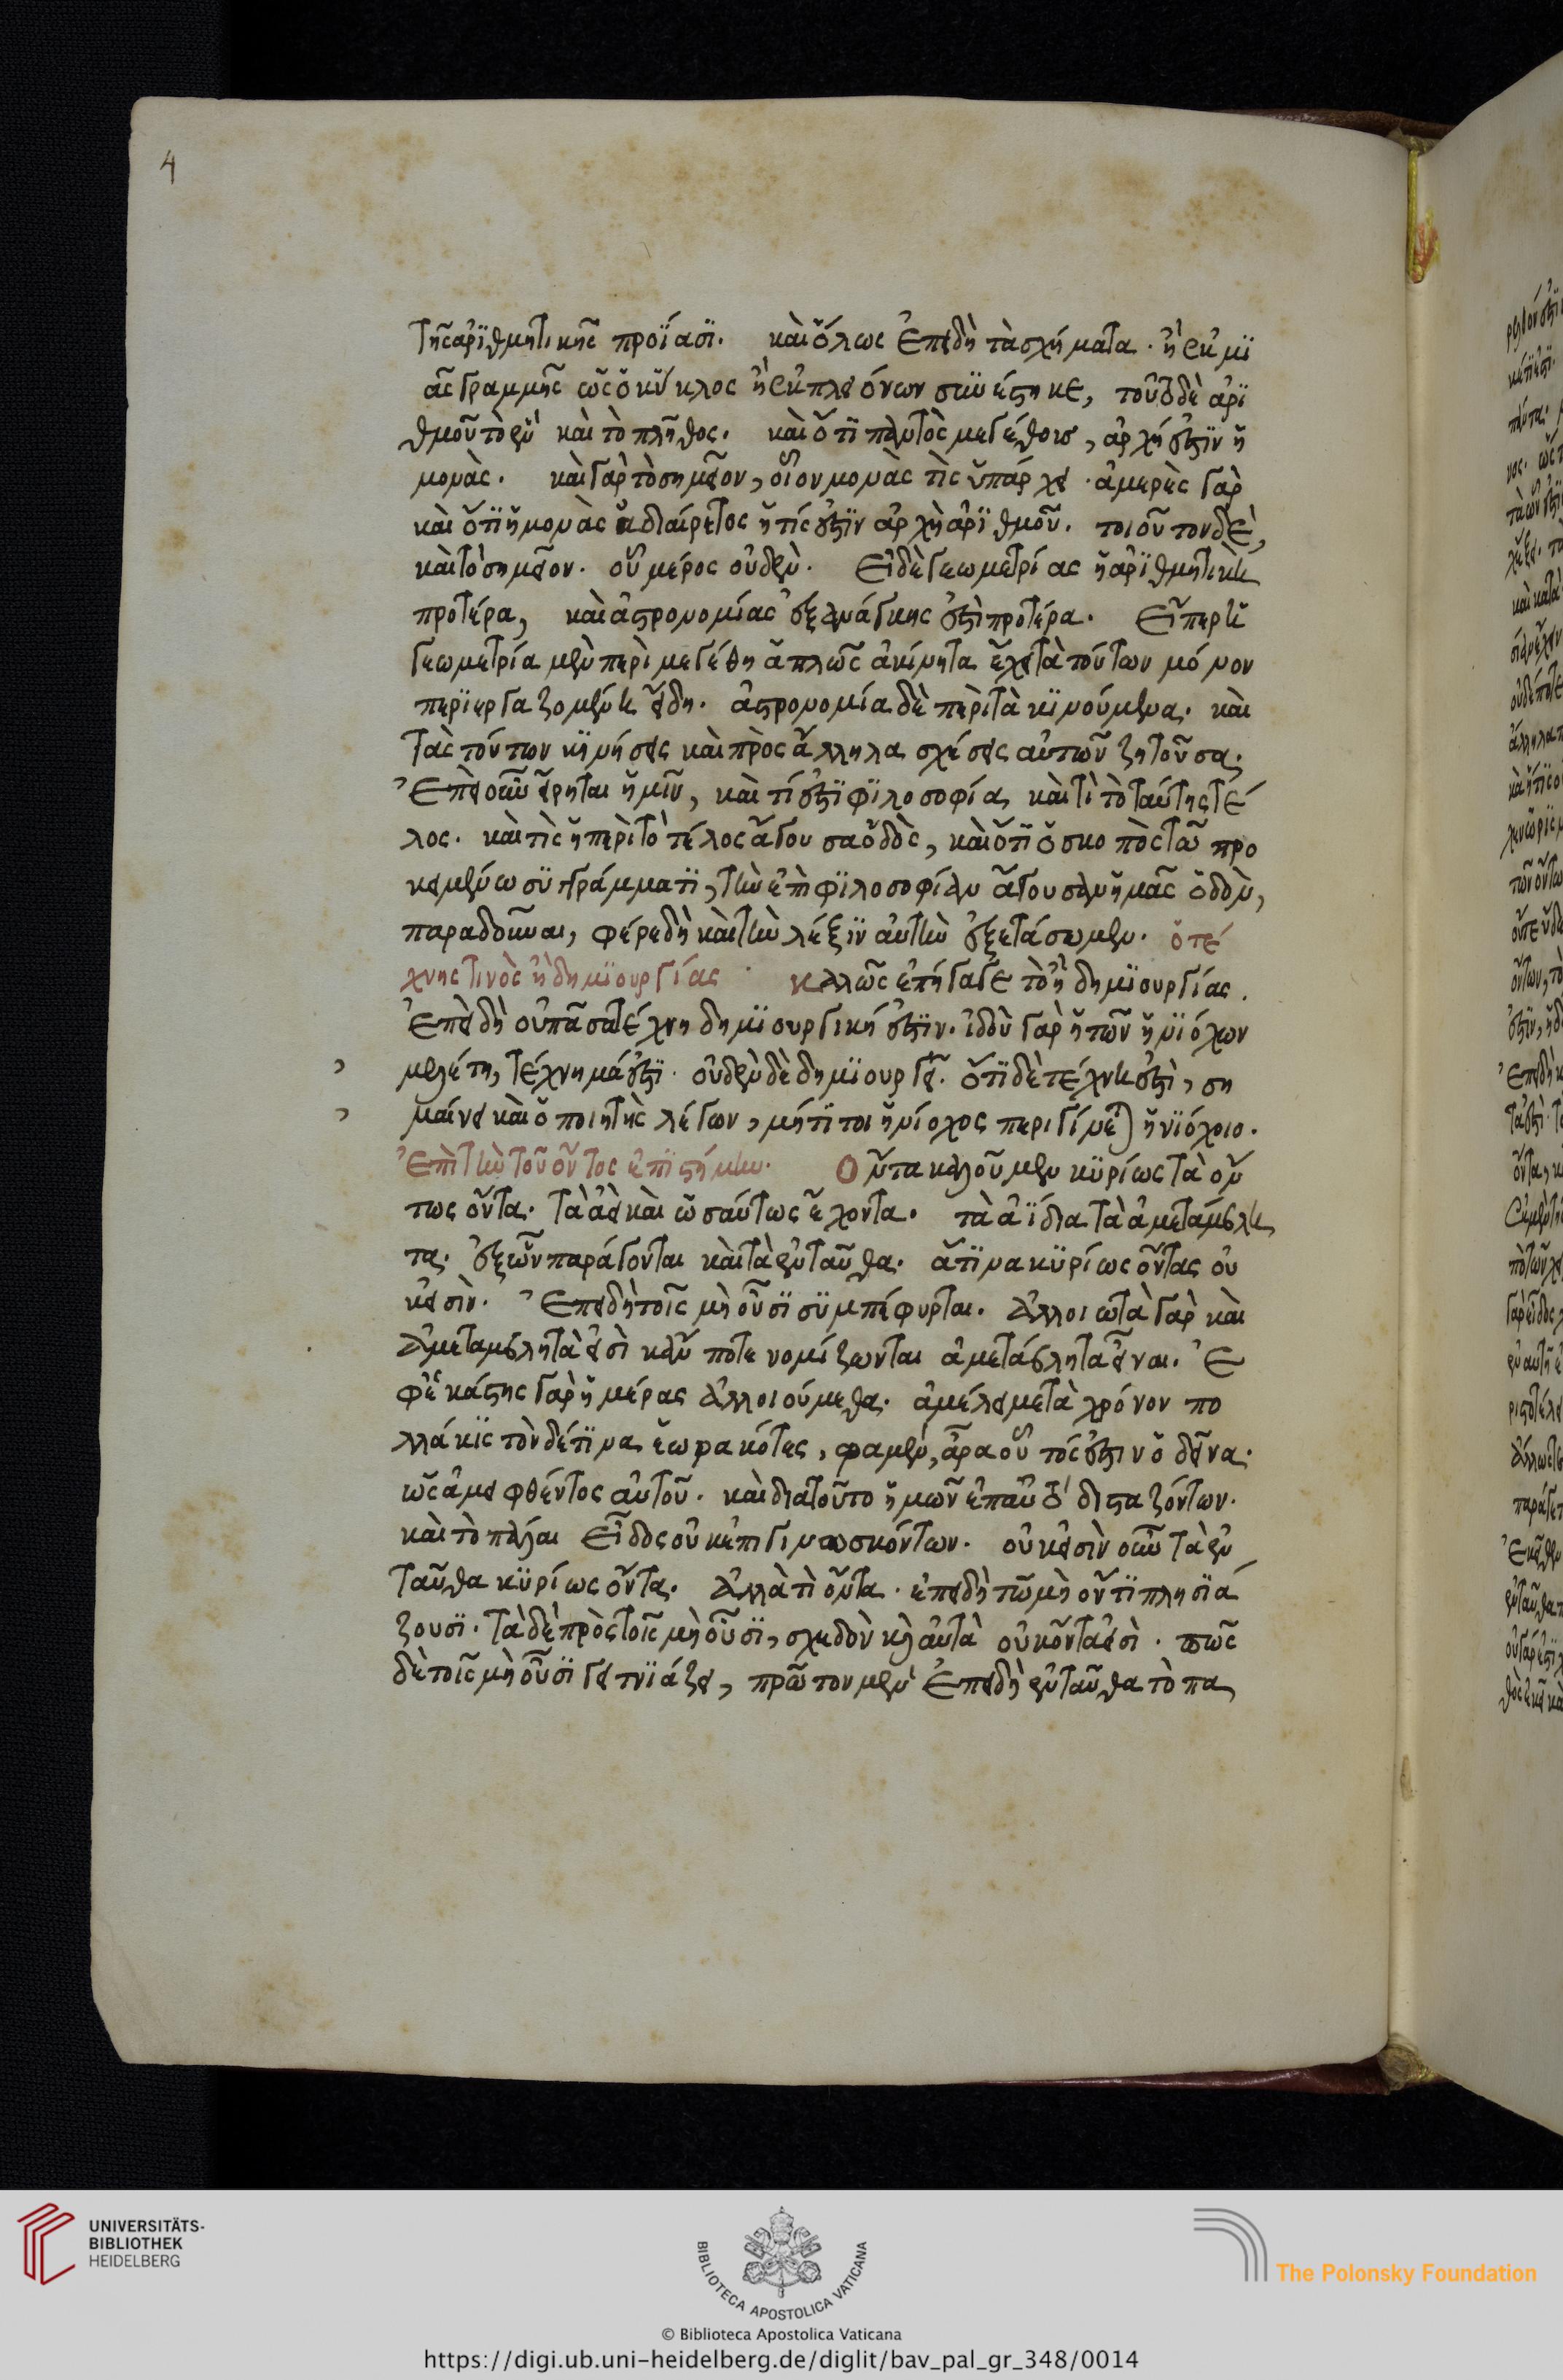 4
τῆς ἀρϊθμητικῆς προΐασϊ. καὶ ὅλως ἐπειδὴ τὰ σχήματα. ἢ ἐκ μϊ
ᾶς γραμμῆς ὡς ὁ κύκλος ἢ ἐκ πλειόνων συνέστηκε, τοῦ δὲ ἀρϊ
θμοῦ τὸ ἓν καὶ τὸ πλῆθος. καὶ ὅτϊ παντὸς μεγέθους, ἀρχή ἐστϊν ἡ
μονὰς. καὶ γὰρ τὸ σημεῖον, οἷον μονὰς τὶς ὑπάρχει. ἀμερὲς γὰρ
καὶ ὅτϊ ἡ μονὰς ἀδιαίρετος ἥτίς ἐστϊν ἀρχὴ ἀρϊθμοῦ. τοιοῦτον δὲ,
καὶ τὸ σημεῖον. οὗ μέρος οὐδὲν. Εἰ δὲ γεωμετρίας ἡ ἀρϊθμητικὴ
προτέρα, καὶ ἀστρονομίας ἐξ ἀνάγκης ἐστὶ προτέρα. Εἴπερ ἡ
γεωμετρία μὲν περὶ μεγέθη ἁπλῶς ἀκίνητα ἔχει τὰ τούτων μόνον
περϊεργαζομένη εἴδη. ἀστρονομία δὲ περὶ τὰ κϊνούμενα. καὶ
τὰς τούτων κϊνήσεις καὶ πρὸς ἄλληλα σχέσεις αὐτῶν ζητοῦσα.
Ἐπεὶ οὖν εἴρηται ἡμῖν, καὶ τί ἐστϊ φϊλοσοφία, καὶ τὶ τὸ ταύτης τέ
λος. καὶ τὶς ἡ περὶ τὸ τέλος ἄγουσα ὁδὸς, καὶ ὅτϊ ὁ σκοπὸς τῶ προ
κειμένω συγγράμματϊ, τὴν ἐπὶ φϊλοσοφίαν ἄγουσαν ἡμᾶς ὁδὸν,
παραδοῦναι, φέρε δὴ καὶ τὴν λέξϊν αὐτὴν ἐξετάσωμεν. ὁ τέ
χνης τινὸς ἢ δημϊουργίας καλῶς ἐπήγαγε τὸ ἢ δημϊουργίας.
Ἐπειδὴ οὐ πᾶσα τέχνη δημϊουργική ἐστϊν. ἰδοὺ γὰρ ἡ τῶν ἡνϊόχων
μελέτη, τέχνη μά ἐστϊ. οὐδὲν δὲ δημϊουργεῖ. ὅτϊ δὲ τέχνη ἐστὶ, ση
μαίνει καὶ ὁ ποιητὴς λέγων, μήτϊ τοι ἡνίοχος περιγίνεται ἡνϊόχοιο.
Ἐπὶ τὴν τοῦ ὄντος ἐπϊστήμην. Ὄντα καλοῦμεν κϋρίως τὰ ὄν
τως ὄντα. τὰ ἀεὶ καὶ ὡσαύτως ἔχοντα. τὰ ἀΐδια τὰ ἀμετάμβλη
τα. ἐξ ὧν παράγονται καὶ τὰ ἐνταῦθα. ἅτϊνα κϋρίως ὄντας οὐ
κ εἰσὶν. Ἐπειδὴ τοῖς μὴ οὖσϊ συμπέφυρται. ἀλλοιωτὰ γὰρ καὶ
ἀμεταμβλητὰ εἰσὶ κἂν ποτε νομίζωνται ἀμετάβλητα εἶναι. Ἐ
φ' ἑκάστης γὰρ ἡμέρας ἀλλοιούμεθα. ἀμέλει μετὰ χρόνον πο
λλάκϊς τὸν δέ τϊνα, ἑωρακότες, φαμὲν, ἆρα οὗτός ἐστιν ὁ δεῖνα.
ὡς ἀμειφθέντος αὐτοῦ. καὶ διατοῦτο ἡμῶν ἐπαυτοῦ δισταζόντων.
καὶ τὸ πάλαι εἶδος οὐκ ἐπιγινωσκόντων. οὐκ εἰσὶν οὖν τὰ ἐν
ταῦθα κϋρίως ὄντα. ἀλλὰ τὶ ὄντα. ἐπειδὴ τῶ μὴ ὄντϊ πλησϊά
ζουσϊ. τὰ δὲ πρὸς τοῖς μὴ οὖσϊ, σχεδὸν καὶ αὐτὰ οὐκ ὄντα εἰσὶ. πῶς
δὲ τοῖς μὴ οὖσϊ γειτνϊάζει, πρῶτον μὲν Ἐπειδὴ ἐνταῦθα τὸ πα
UNIVERSITÄTS-
BIBLIOTHEK
HEIDELBERG
BIBLIOTECA APOSTOLICA VATICANA
The Polonsky Foundation
© Biblioteca Apostolica Vaticana
https://digi.ub.uni-heidelberg.de/diglit/bav_pal_gr_348/0014